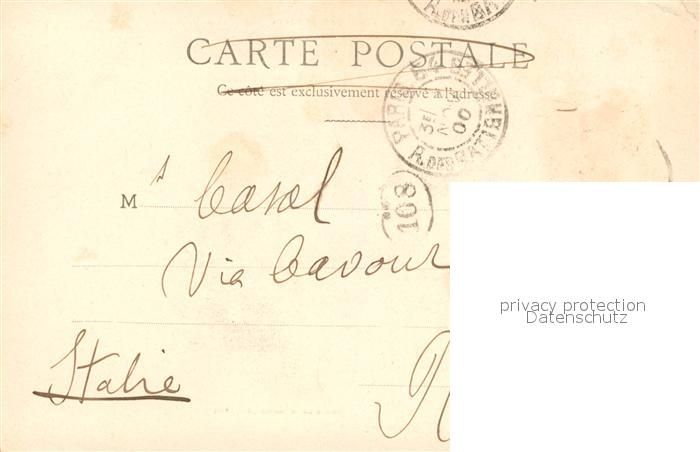 CARTE POSTALE
Ce côté est exclusivement réservé à l'adresse
PARIS
00
108
Ms Casal
Via Cavour
Italie
R
privacy protection
Datenschutz